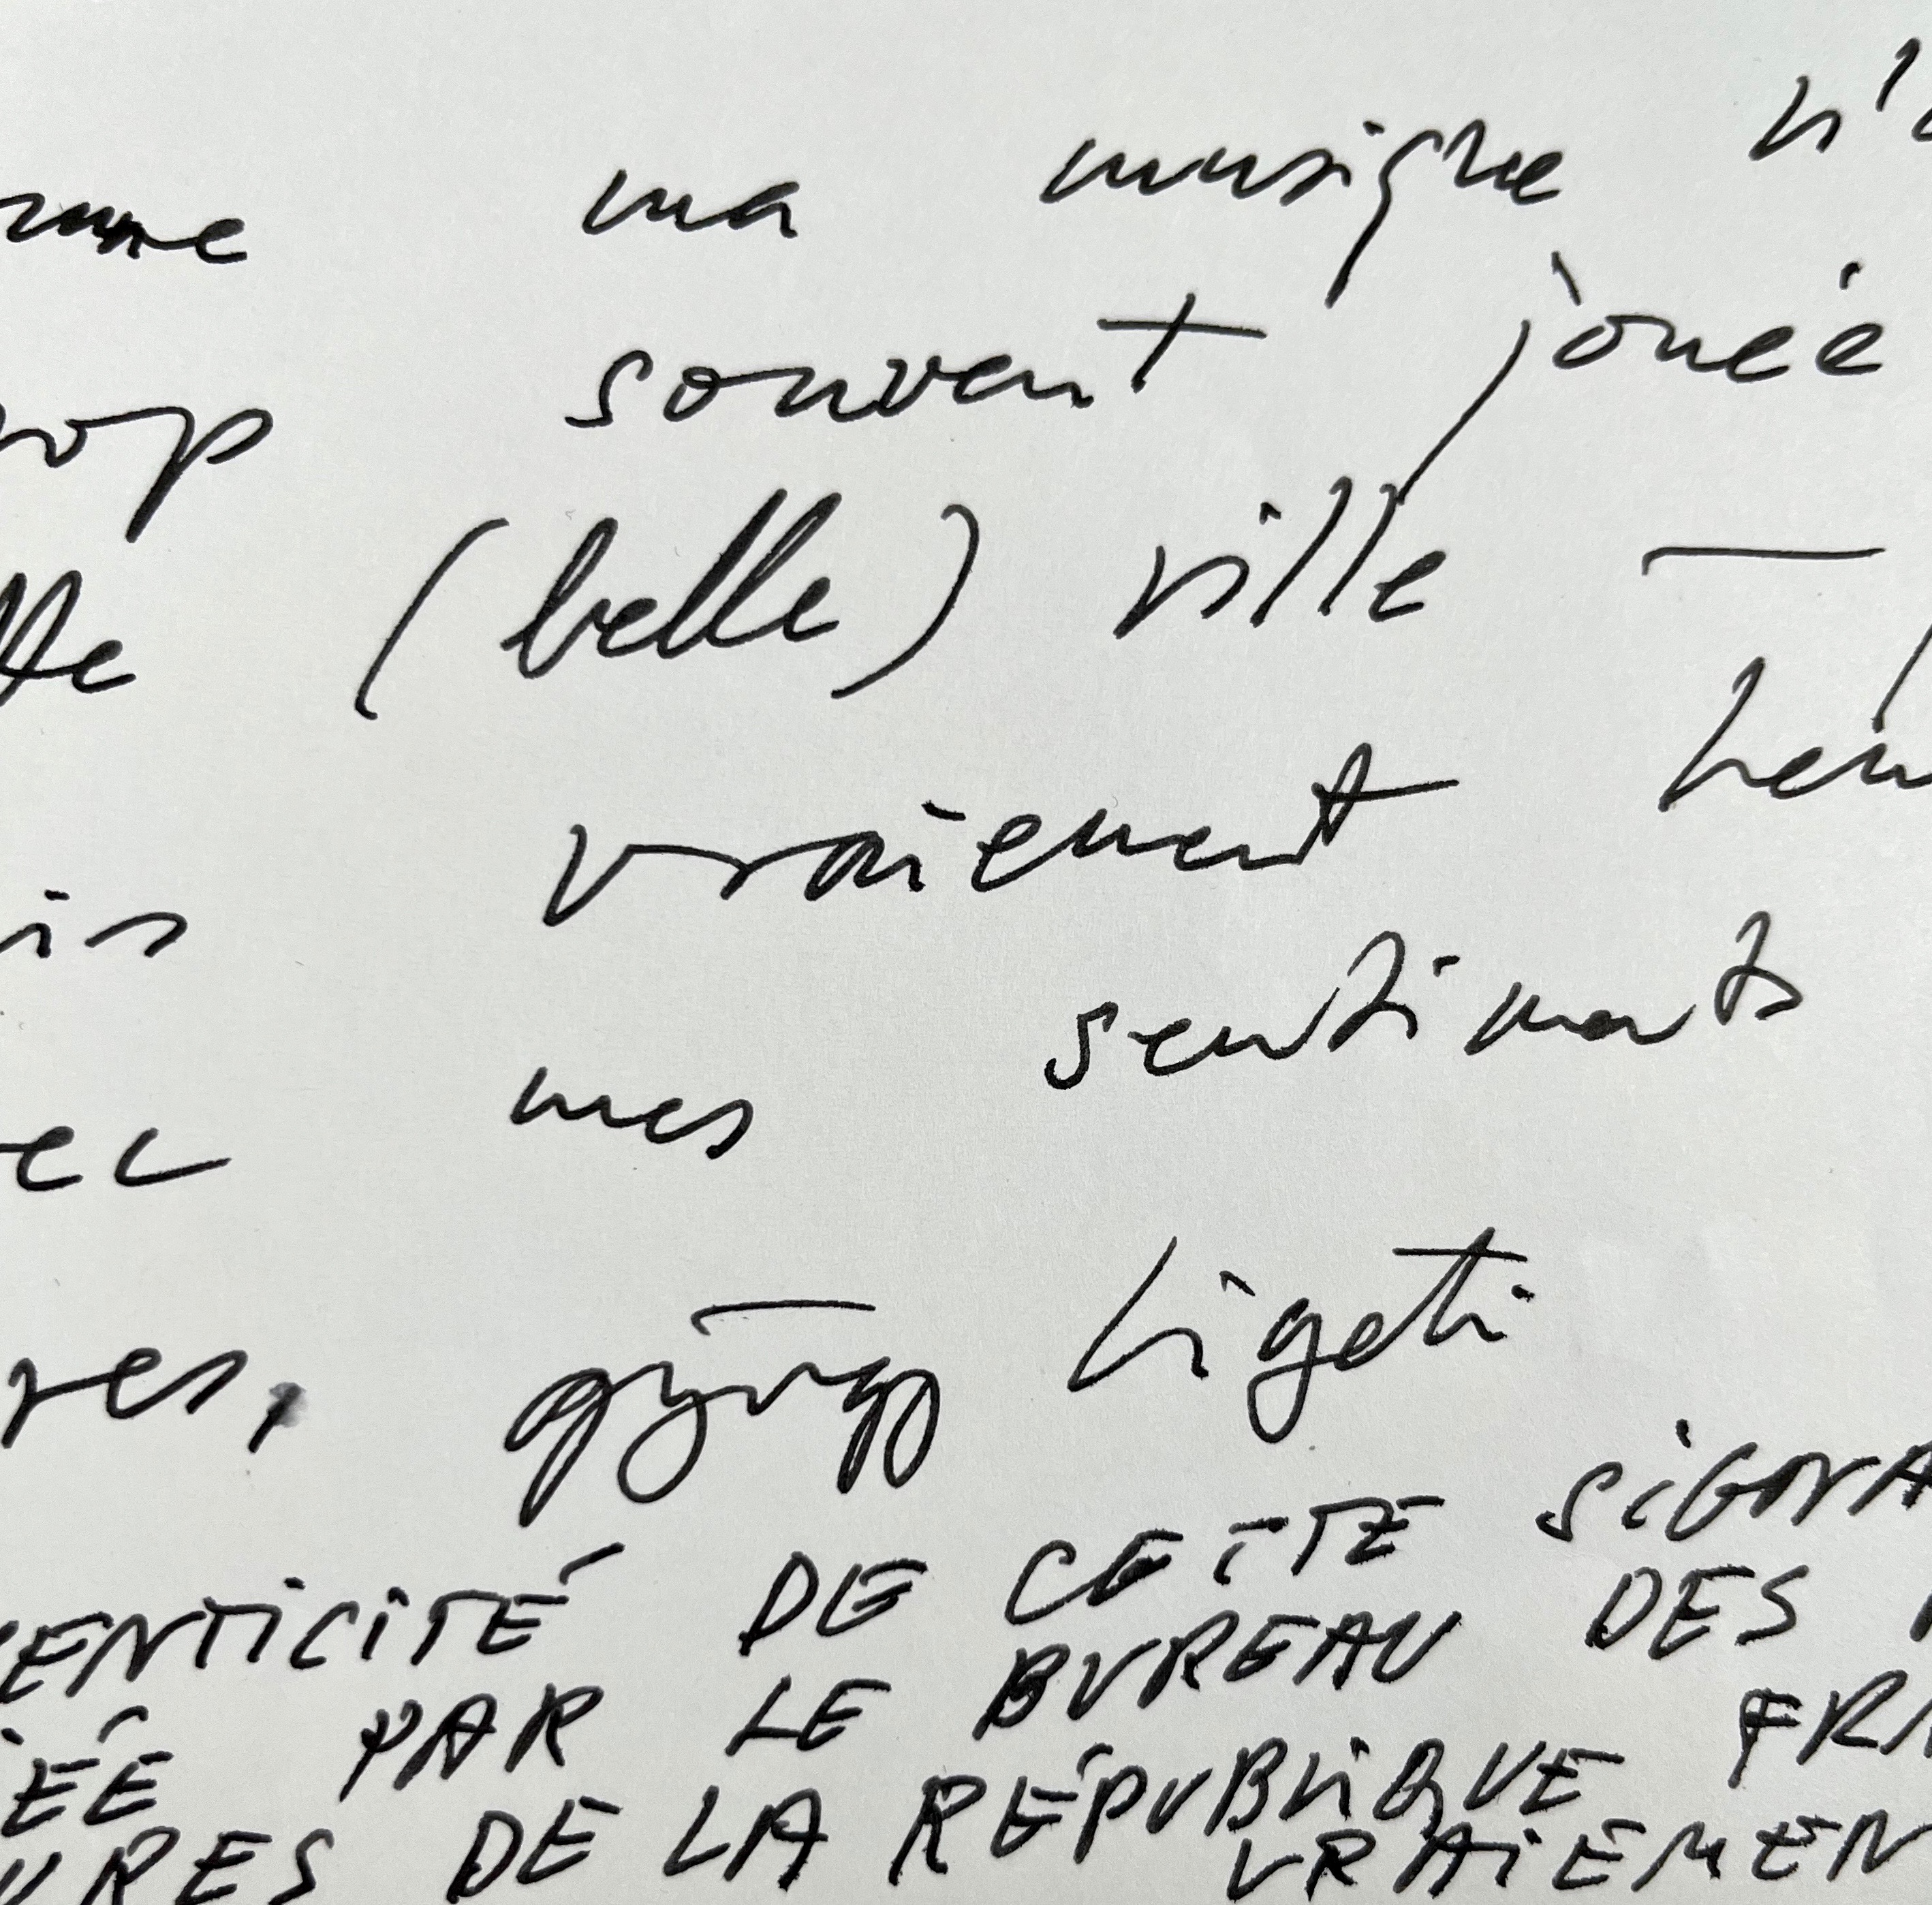 mme ma musique n'e
rop souvent jouée
tte (belle) ville —
is vraiement heu
ec mes sentiments
res, György Ligeti
ENTICITÉ DE CETTE SIGNA
ÉE PAR LE BUREAU DES
URES DE LA RÉPUBLIQUE FRA
VRAIEMEN